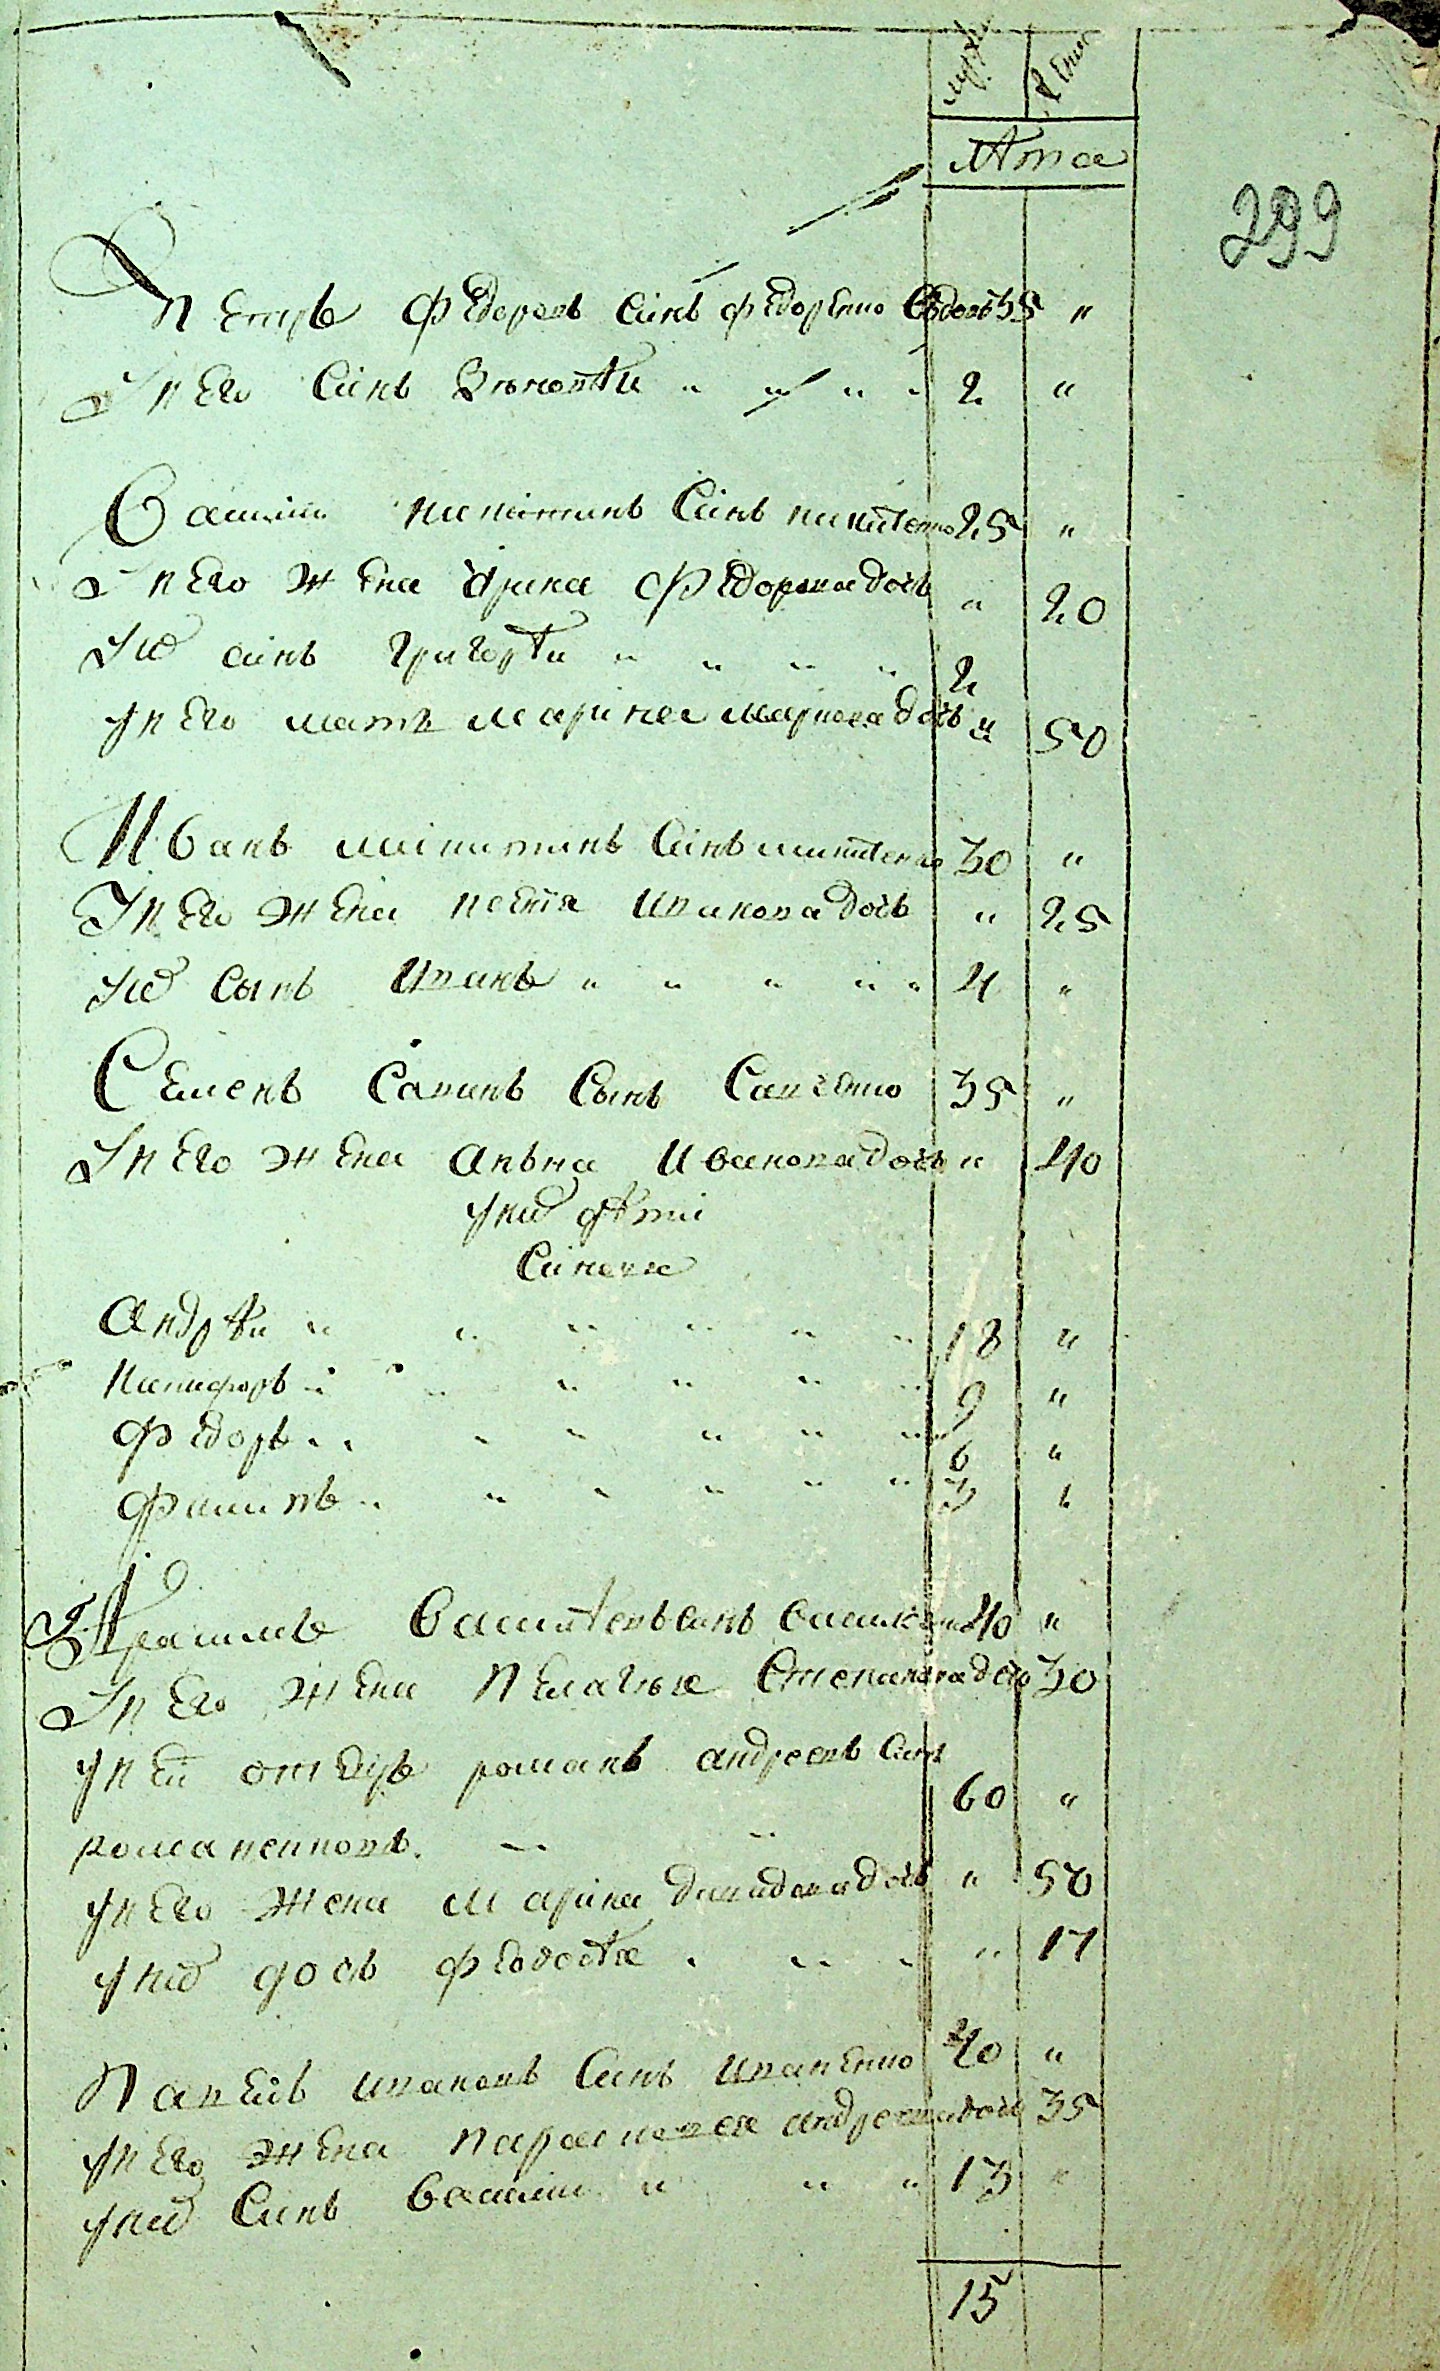 мужс женс
лѣта
299
Петръ Федоровъ синъ Федоренко вдовъ 35 "
У него синъ " " " " 2 "
Василій никитинъ Синъ никитенко 25 "
У него жена Ярина Федорова дочь " 20
У них синъ Григорѣи " " " " 2
У него мать Марина маркова дочь " 50
Иванъ микитинъ Синъ микитенко 30 "
У него жена Иванова дочь " 25
У них Сынъ Иванъ " " " " " 4 "
Семенъ Савинъ Сынъ Савченко 35 "
У него жена Анъна Иванова дочь " 40
У них дѣти
Синове
Андрѣи " " " " " " 18 "
Никифоръ " " " " " " 9 "
Федоръ " " " " " " 6 "
Филипъ " " " " " " 3 "
Герасимъ Василѣевъ синъ василенко 40 "
У него жена Пелагѣя Степанова дочь 30
У ней отецъ романъ андреевъ Синъ
романенковъ " " 60 "
У него жена Марина давидова дочь " 50
У них дочь Феодосѣя " " " " 17
Павелъ ивановъ Синъ иваненко 40 "
У него жена параскевея андреева дочь 35
У них Синъ Василии " " " 13 "
15